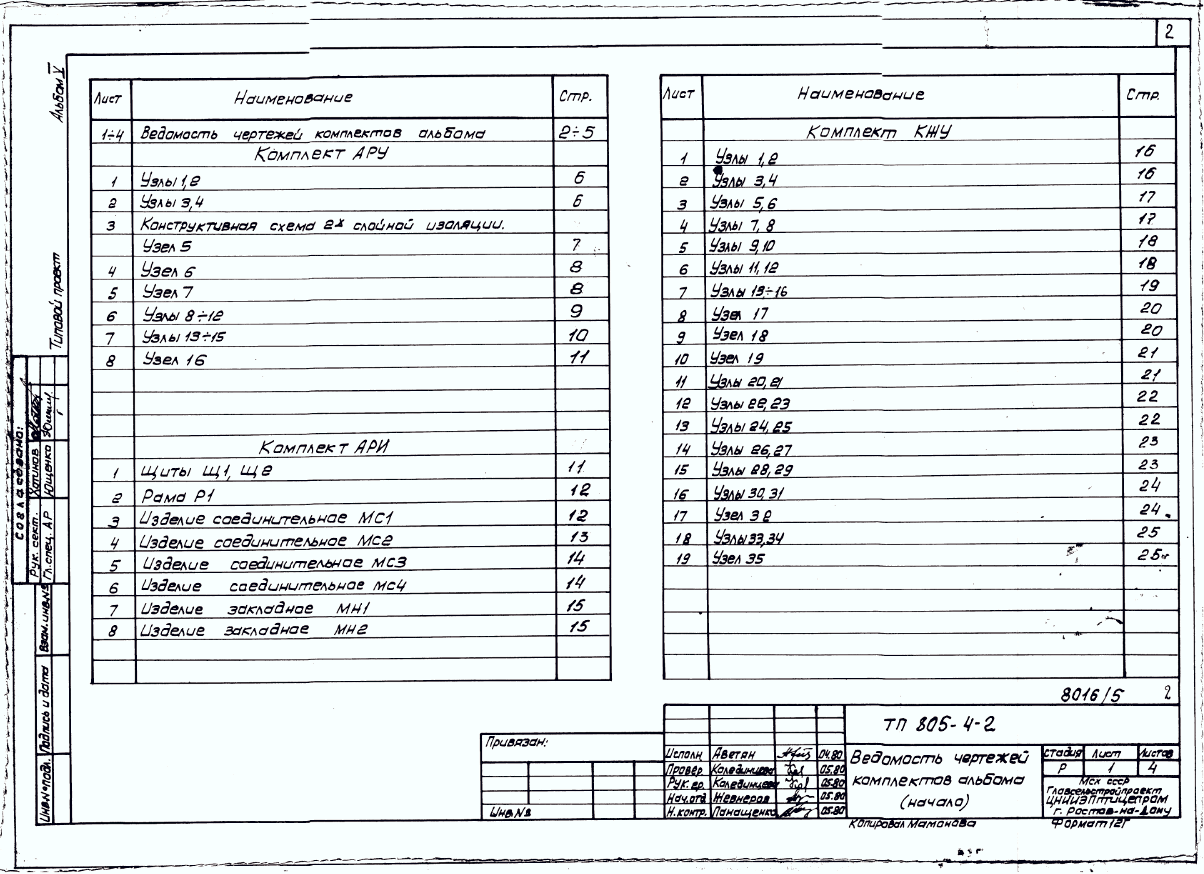 2
Альбом V
Типовой проект
Лист Наименование Стр.
1÷4 Ведомость чертежей комплектов альбома 2÷5
Комплект АРУ
1 Узлы 1,2 6
2 Узлы 3,4 6
3 Конструктивная схема 2х слойной изоляции.
Узел 5 7
4 Узел 6 8
5 Узел 7 8
6 Узлы 8÷12 9
7 Узлы 13÷15 10
8 Узел 16 11
Комплект АРИ
1 Щиты Щ1, Щ2 11
2 Рама Р1 12
3 Изделие соединительное МС1 12
4 Изделие соединительное МС2 13
5 Изделие соединительное МС3 14
6 Изделие соединительное МС4 14
7 Изделие закладное МН1 15
8 Изделие закладное МН2 15
Лист Наименование Стр.
Комплект КЖУ
1 Узлы 1,2 16
2 Узлы 3,4 16
3 Узлы 5,6 17
4 Узлы 7,8 17
5 Узлы 9,10 18
6 Узлы 11,12 18
7 Узлы 13÷16 19
8 Узел 17 20
9 Узел 18 20
10 Узел 19 21
11 Узлы 20,21 21
12 Узлы 22,23 22
13 Узлы 24,25 22
14 Узлы 26,27 23
15 Узлы 28,29 23
16 Узлы 30,31 24
17 Узел 32 24
18 Узлы 33,34 25
19 Узел 35 25
Согласовано:
Рук. сект. Хотинов
Гл. спец. АР Ющенко
Взам. инв. №
Подпись и дата
Инв. № подл.
8016/5 2
Привязан:
Инв №
ТП 805-4-2
Исполн. Аветян 04.80
Провер. Колединцева 05.80
Рук. гр. Колединцева 05.80
Нач. отд. Жевнеров 05.80
Н. контр. Панащенко 05.80
Ведомость чертежей
комплектов альбома
(начало)
Стадия Лист Листов
Р 1 4
Мсх СССР
Главсельстройпроект
ЦНИИЭПптицепром
г. Ростов-на-Дону
Копировал Маманова Формат 12Г